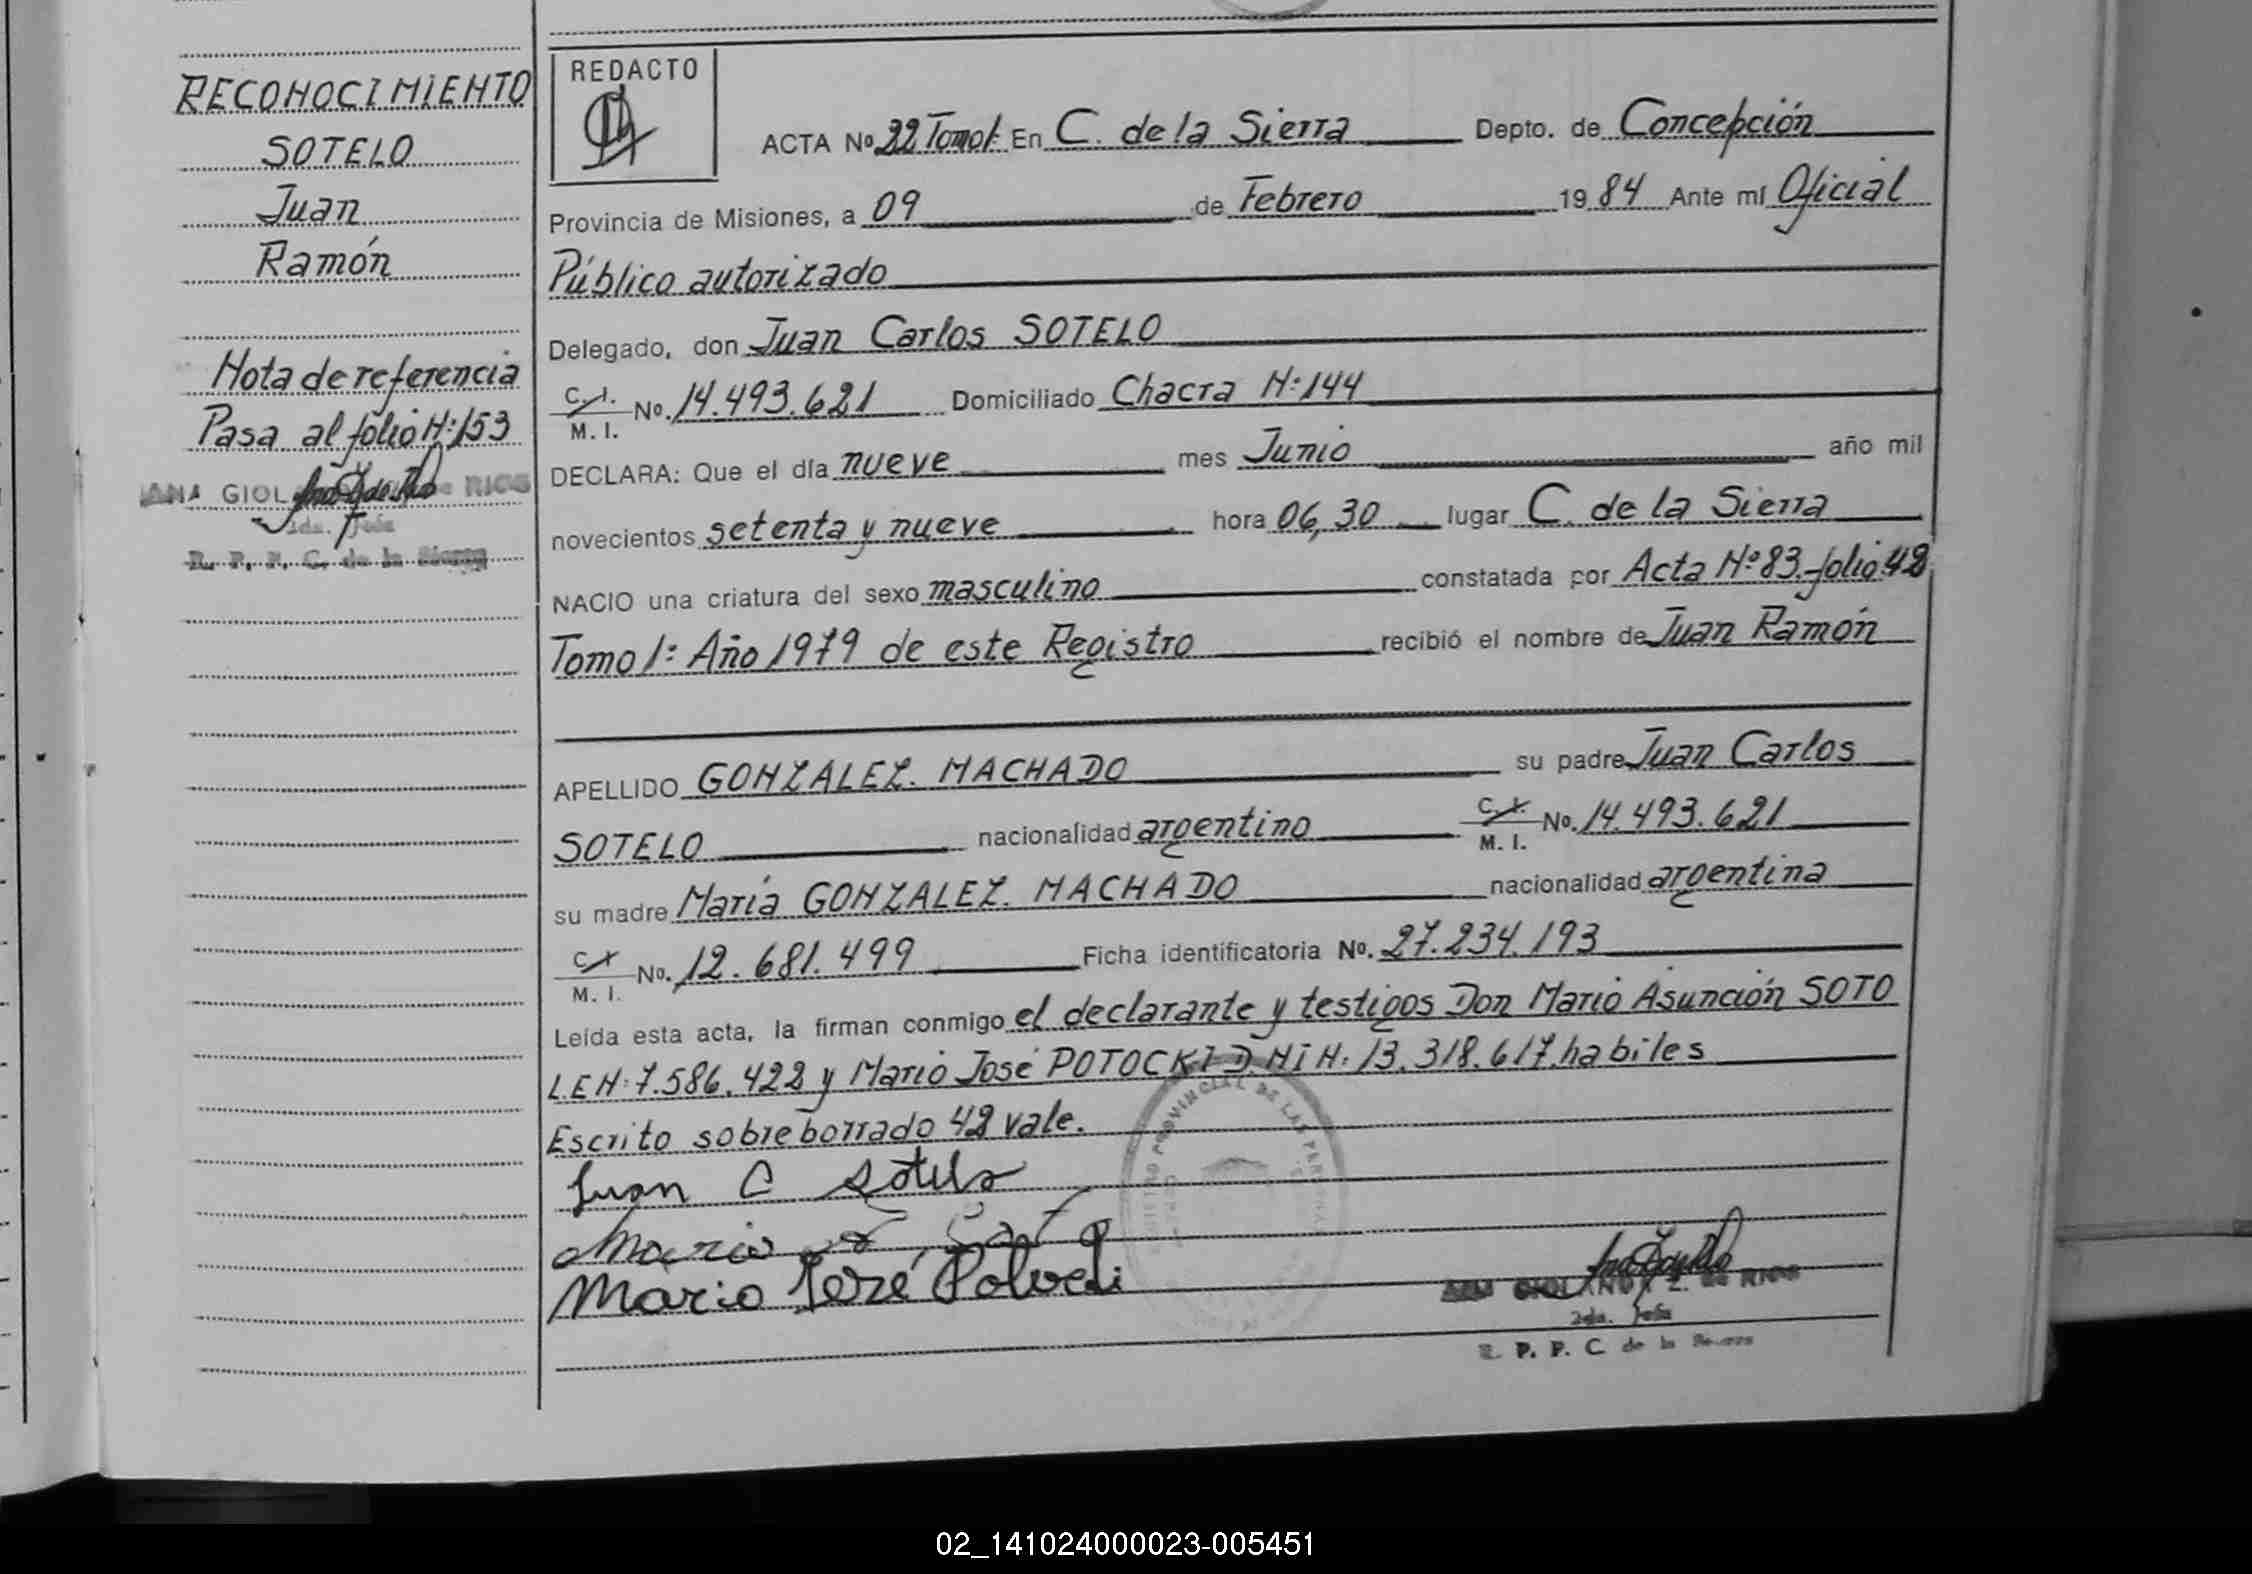 RECONOCIMIENTO
SOTELO
Juan
Ramón
Nota de referencia
Pasa al folio N:153
ANA GIOL de RIOS
2da. Jefa
R. P. P. C. de la Sierra
REDACTO
ACTA No 22 Tomo 1: En C. de la Sierra Depto. de Concepción
Provincia de Misiones, a 09 de Febrero 1984 Ante mí Oficial
Público autorizado
Delegado, don Juan Carlos SOTELO
C. I. M. I. No. 14.493.621 Domiciliado Chacra N:144
DECLARA: Que el día nueve mes Junio año mil
novecientos setenta y nueve hora 06,30 lugar C. de la Sierra
NACIO una criatura del sexo masculino constatada por Acta Nº 83. folio 42
Tomo 1: Año 1979 de este Registro recibió el nombre de Juan Ramón
APELLIDO GONZALEZ. MACHADO su padre Juan Carlos
SOTELO nacionalidad argentino C. I. M. I. No. 14.493.621
su madre María GONZALEZ. MACHADO nacionalidad argentina
C I M. I. No. 12.681.499 Ficha identificatoria No. 27.234.193
Leída esta acta, la firman conmigo el declarante y testigos Don Mario Asunción SOTO
L.E N: 7.586.422 y Mario José POTOCKI D.N i N: 13.318.617. habiles
Escrito sobre borrado 42 vale.
Juan C Sotelo
Mario Soto
Mario José Potocki
REGISTRO PROVINCIAL DE LAS PERSONAS
DE RIOS
2da. Jefa
R. P. P. C. de la Sierra
02_141024000023-005451